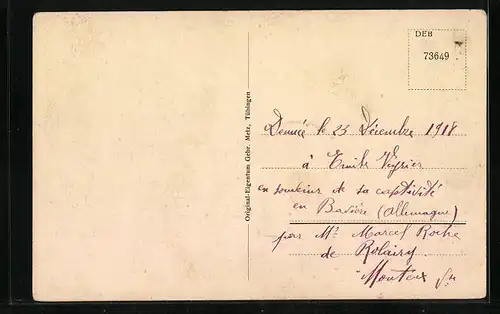 DEB
73649
Original-Eigentum Gebr. Metz, Tübingen
Donnée le 23 Décembre 1918
à Emile Veyrier
en souvenir de sa captivité
en Bavière (Allemagne)
par Mr Marcel Roche
de
Monteux